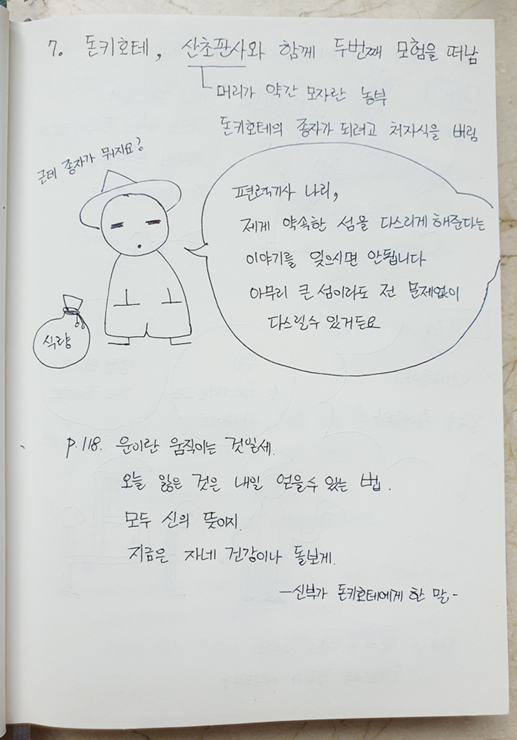 7. 돈키호테, 산초판사와 함께 두번째 모험을 떠남
머리가 약간 모자란 농부
돈키호테의 종자가 되려고 처자식을 버림
근데 종자가 뭐지요?
편력기사 나리,
제게 약속한 섬을 다스리게 해준다는
이야기를 잊으시면 안됩니다
아무리 큰 섬이라도 전 문제없이
다스릴수 있거든요
식량
P.118. 운이란 움직이는 것일세.
오늘 잃은 것은 내일 얻을수 있는 법.
모두 신의 뜻이지.
지금은 자네 건강이나 돌보게.
-신부가 돈키호테에게 한 말-